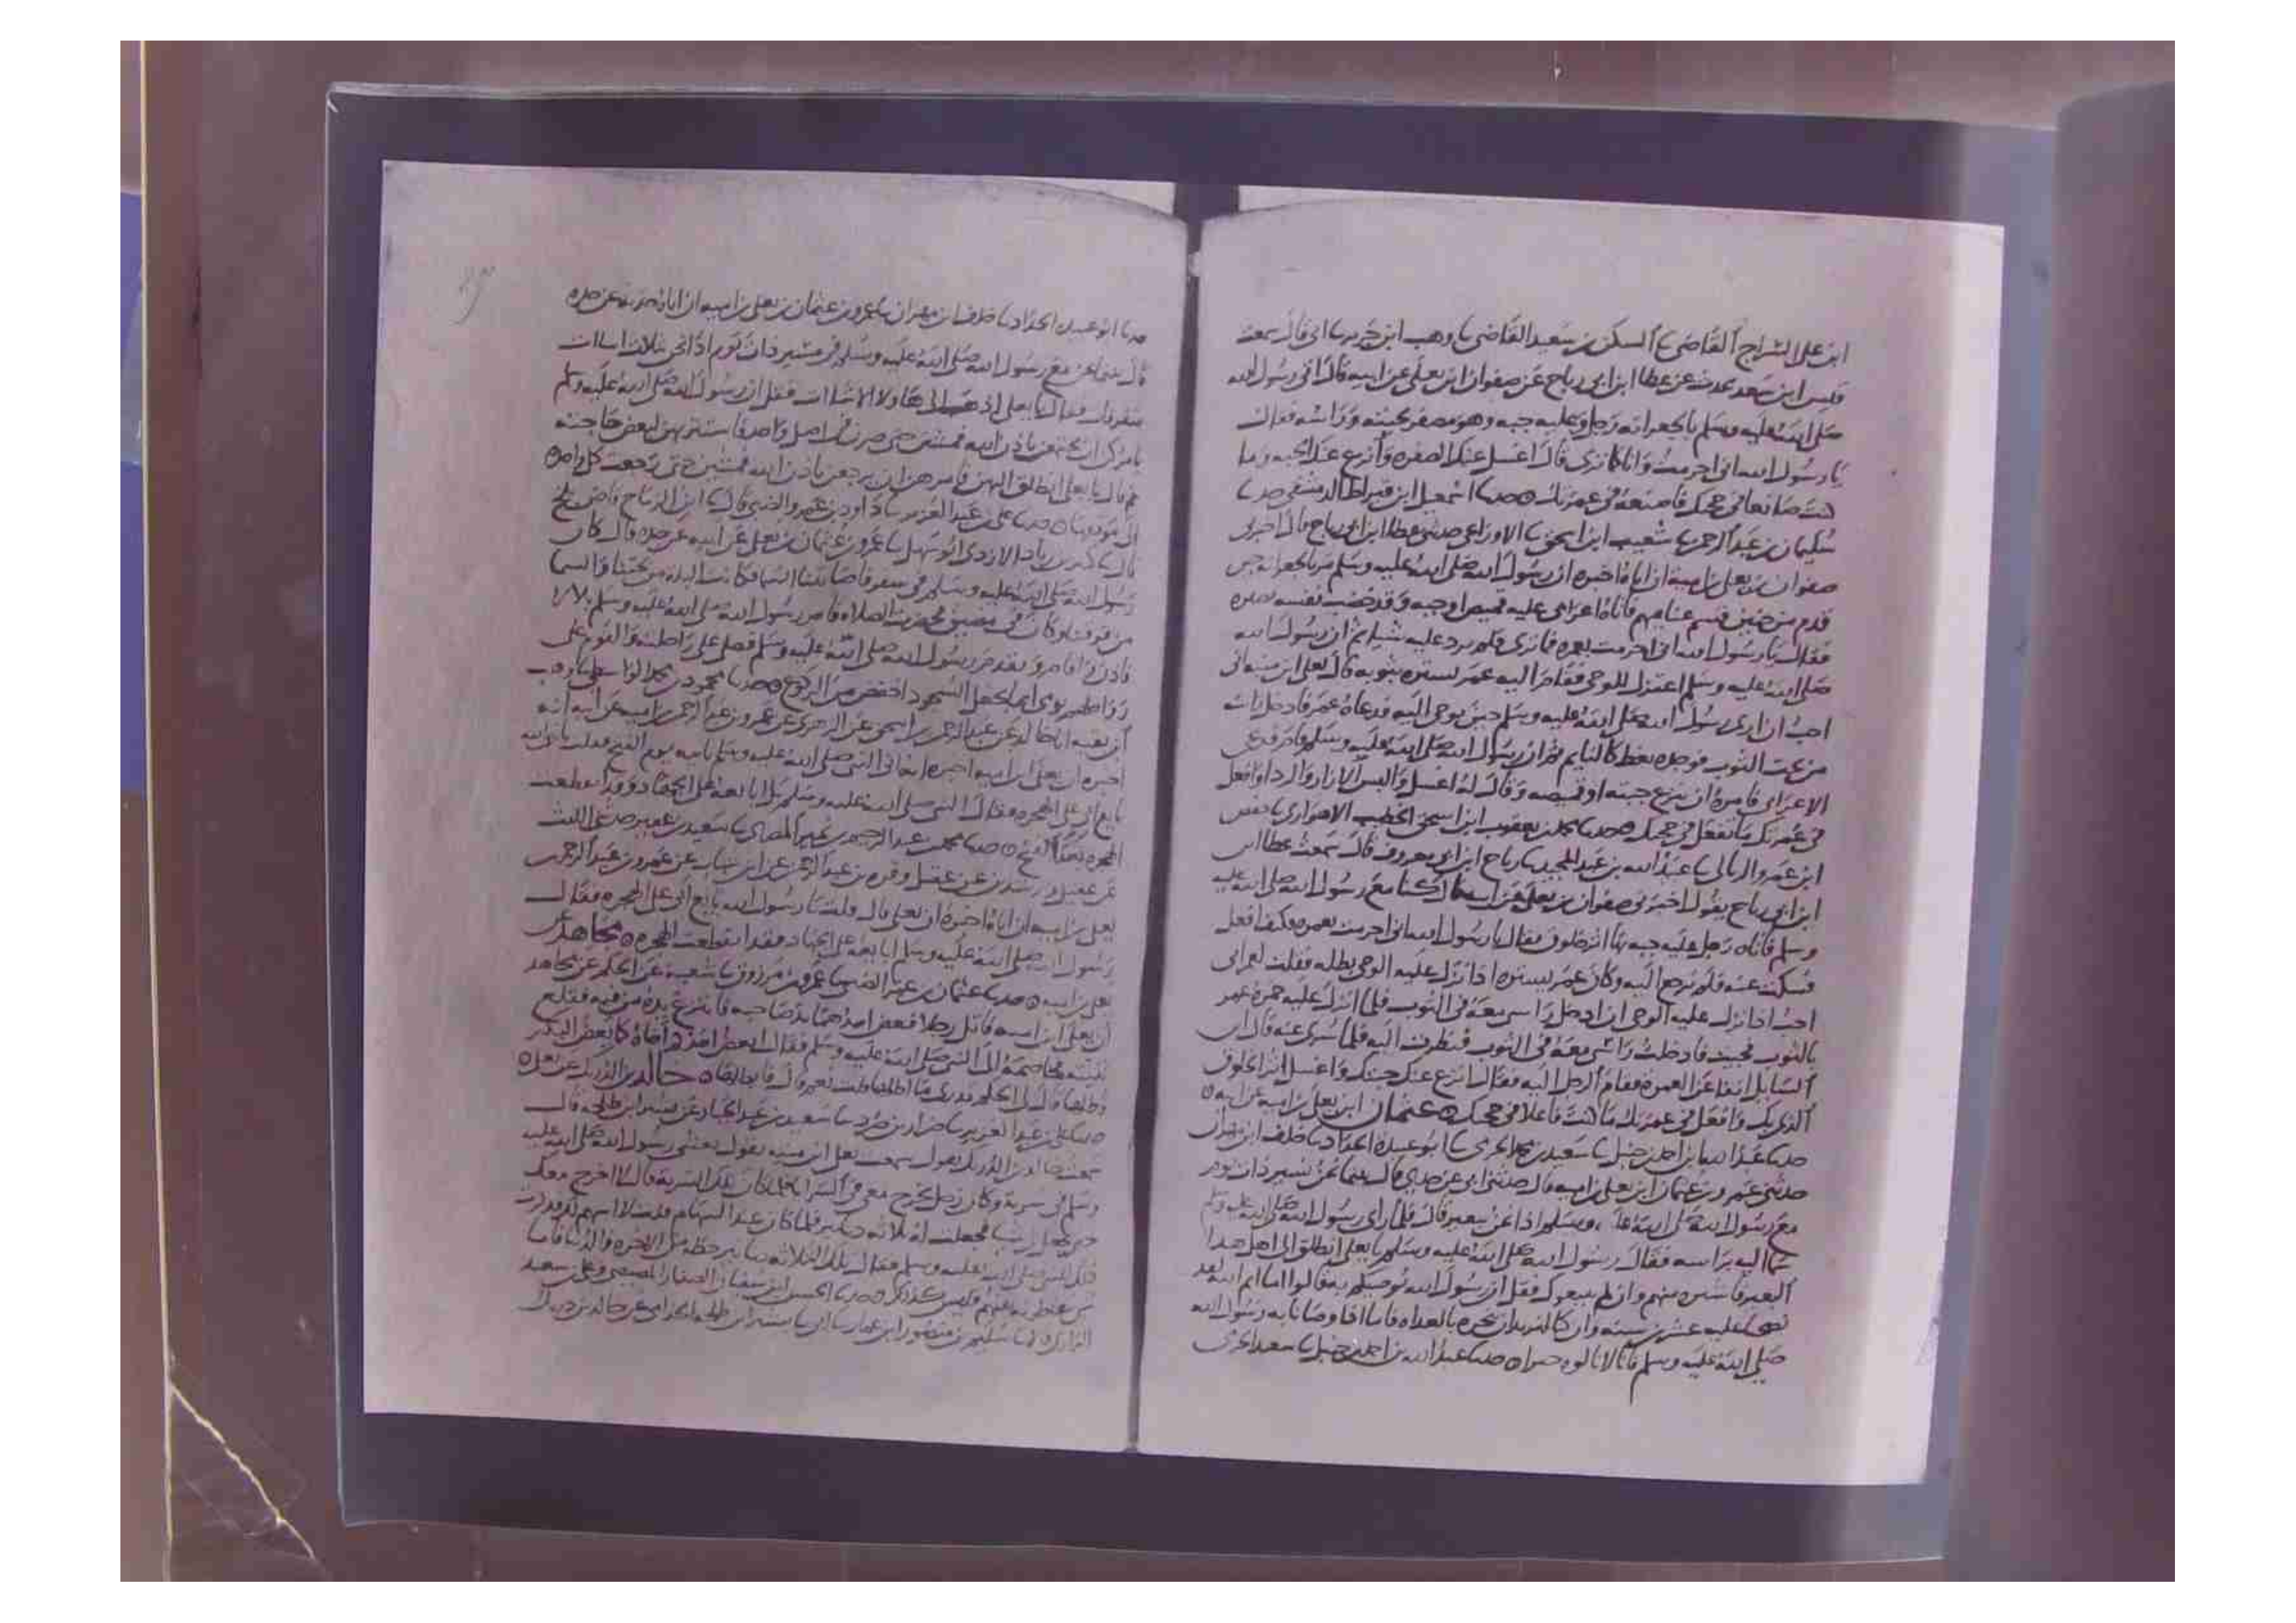 ابن علي السراج القاضي نا السكن بن سعيد القاضي نا وهب ابن جرير نا ابي قال سمعت
قيس ابن سعد يحدث عن عطا ابن ابي رباح عن صفوان ابن يعلى عن ابيه قال اتى رسول الله
صلى الله عليه وسلم بالجعرانه رجل وعليه جبه وهو مصفر لحيته وراسه فقال
يا رسول الله اني احرمت وانا كما ترى قال اغسل عنك الصفره وانزع عنك الجبه وما
كنت صانعا في حجك فاصنعه في عمرتك ٥ حدثنا اسمعيل ابن قيراط الدمشقي حدثنا
سليمان بن عبد الرحمن نا شعيب ابن اسحق نا الاوزاعي حدثني عطا ابن ابي رباح قال اخبرني
صفوان بن يعلى بن امية ان اباه اخبره ان رسول الله صلى الله عليه وسلم مر بالجعرانه حين
قدم من حنين فقسم غنايمهم فاتاه اعرابي عليه قميص او جبه وقد خضب نفسه بصفره
فقال يا رسول الله اني احرمت بعمره فما ترى فلم يرد عليه شيا ثم ان رسول الله
صلى الله عليه وسلم اعتزل للوحي فقام اليه عمر يستره بثوبه قال يعلى ابن منيه اني
احب ان ارى رسول الله صلى الله عليه وسلم حين يوحى اليه فدعاه عمر فادخل راسه
من تحت الثوب فوجده يغط كالنايم ثم ان رسول الله صلى الله عليه وسلم قام فدعى
الاعرابي فامره ان ينزع جبته او قميصه وقال له اغسل والبس الازار والردا وافعل
في عمرتك ما تفعل في حجك ٥ حدثنا محمد بن يعقوب ابن اسحق الخطيب الاهوازي نا حفص
ابن عمرو الربالي نا عبد الله بن عبد المجيد نا رباح ابن ابي معروف قال سمعت عطا ابن
ابن ابي رباح يقول اخبرني صفوان بن يعلى عن ابيه قال كنا مع رسول الله صلى الله عليه
وسلم فاتاه رجل عليه جبه بها اثر خلوق فقال يا رسول الله اني احرمت بعمره فكيف افعل
فسكت عنه فلم يرجع اليه وكان عمر يستره اذا نزل عليه الوحي يظله فقلت لعمر اني
احب اذا نزل عليه الوحي ان ادخل راسي معه في الثوب فلما انزل عليه خمره عمر
بالثوب فجيت فادخلت راسي معه في الثوب فنظرت اليه فلما سري عنه قال اين
السايل انفا عن العمره فقام الرجل اليه فقال انزع عنك جبتك واغسل اثر الخلوق
الذي بك وافعل في عمرتك ما كنت فاعلا في حجك ٥ عثمان ابن يعلى بن اميه عن ابيه ٥
حدثنا عبد الله ابن احمد بن حنبل نا سعيد بن محمد الجرمي نا ابو عبيده الحداد نا خلف ابن مهران
حدثني عمرو بن عثمان ابن يعلى بن اميه قال حدثني ابي عن جدي قال بينما نحن نسير ذات يوم
مع رسول الله صلى الله عليه وسلم اذا نحن ببعير قال فلما راى رسول الله صلى الله عليه وسلم
سما اليه براسه فقال رسول الله صلى الله عليه وسلم يا يعلى انطلق الى اهل هذا
البعير فاشتره منهم وان لم يبيعوك فقل ان رسول الله يوصيكم به فقالوا اما ايم الله لقد
نضحنا عليه عشرين سنه وان كنا لنريد ان ننحره بالغداه فاما اذا وصانا به رسول الله
صلى الله عليه وسلم فانا لا نالوه خيرا ٥ حدثنا عبد الله بن احمد بن حنبل نا سعيد الجرمي
حدثنا ابو عبيده الحداد نا خلف ابن مهران نا عمرو بن عثمان بن يعلى بن اميه ان اباه حدثه عن جده
قال بينما نحن مع رسول الله صلى الله عليه وسلم في مسير ذات يوم اذا نحن بثلاث اشاات
متفرقات فقال يا يعلى اذهب الى هاولا الاشاات فقل ان رسول الله صلى الله عليه وسلم
يامركن ان تجتمعن باذن الله فمشين حتى صرن في اصل واحد فاستتر بهن لبعض حاجته
ثم قال يا يعلى انطلق اليهن فامرهن ان يرجعن باذن الله فمشين حتى رجعت كل واحده
الى موضعها ٥ حدثنا علي بن عبد العزيز نا داود بن عمرو الضبي قال نا ابن الرماح قاضي بلخ
قال نا كثير بن زياد الازدي ابو سهل نا عمرو بن عثمان بن يعلى عن ابيه عن جده قال كان
رسول الله صلى الله عليه وسلم في سفر فاصابتنا السما فكانت البله من تحتنا والسما
من فوقنا وكان في مضيق فحضرت الصلاه فامر رسول الله صلى الله عليه وسلم بلالا
فاذن او اقام وتقدم رسول الله صلى الله عليه وسلم فصلى على راحلته والقوم على
رواحلهم يومي ايما يجعل السجود اخفض من الركوع ٥ حدثنا محمود بن محمد الواسطي نا وهب
ابن بقيه انا خالد عن عبد الرحمن بن اسحق عن الزهري عن عمرو بن عبد الرحمن بن اميه عن ابيه انه
اخبره ان يعلى ابن اميه اخبره انه اتى النبي صلى الله عليه وسلم بابيه يوم الفتح فقلت يا رسول الله
بايع ابي على الهجره فقال النبي صلى الله عليه وسلم بل ابايعه على الجهاد وقد انقطعت
الهجره بعد الفتح ٥ حدثنا محمد بن عبد الرحيم بن نمير المصري نا سعيد بن عفير حدثني الليث
عن عقيل ورشدين عن عقيل وقره بن عبد الرحمن عن ابن شهاب عن عمرو بن عبد الرحمن
يعلى بن اميه ان اباه اخبره ان يعلى قال قلت يا رسول الله بايع ابي على الهجره فقال
رسول الله صلى الله عليه وسلم ابايعه على الجهاد فقد انقطعت الهجره ٥ مجاهد عن
يعلى بن اميه ٥ حدثنا عثمان بن عمر الضبي نا عمرو بن مرزوق نا شعبه عن الحكم عن مجاهد
ان يعلى ابن اميه قاتل رجلا فعض احدهما يد صاحبه فانتزع يده من فيه فقلع
ثنيته فخاصمه الى النبي صلى الله عليه وسلم فقال ايعض احدكم اخاه كما يعض البكر
فاطلها قال لي الحكم تدري ما اطلها قلت نعم قال فابطلها ٥ خالد بن الدريك عن يعلى ٥
حدثنا علي بن عبد العزيز نا ضرار بن صرد نا سعيد بن عبد الجبار عن بشير ابن طلحه قال
سمعت خالد بن الدريك يقول سمعت يعلى ابن منيه يقول بعثني رسول الله صلى الله عليه
وسلم في سريه وكان رجل يخرج معي في السرايا كان تلك السريه قال لا اخرج معك
حتى تجعل لي شيا فجعلت له ثلاثه دنانير فلما كان عند السهام
للنبي صلى الله عليه وسلم فقال تلك الثلاثه دنانير حظه من الاخره والدنيا
حدثنا الحسن ابن سفيان الصفار المصيصي وعلي بن سعيد
الرازي قالا نا سليم بن منصور ابن عمار نا ابي نا بشير ابن طلحه الجذامي عن خالد بن دريك